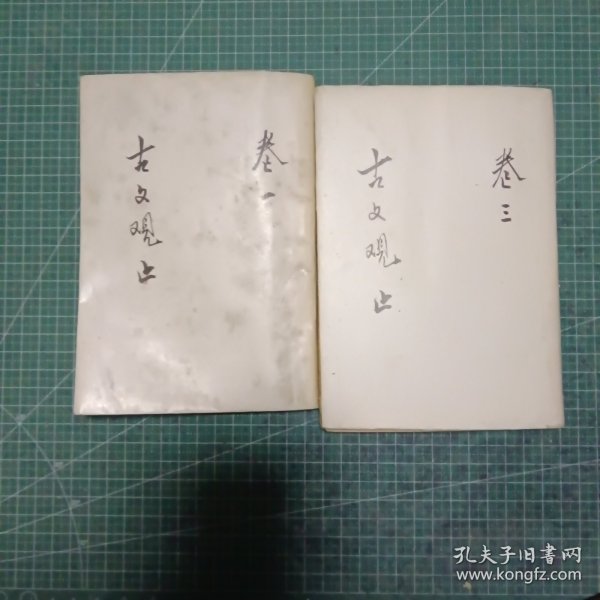 卷一
古文观止
卷三
古文观止
孔夫子旧書网
www.kongfz.com